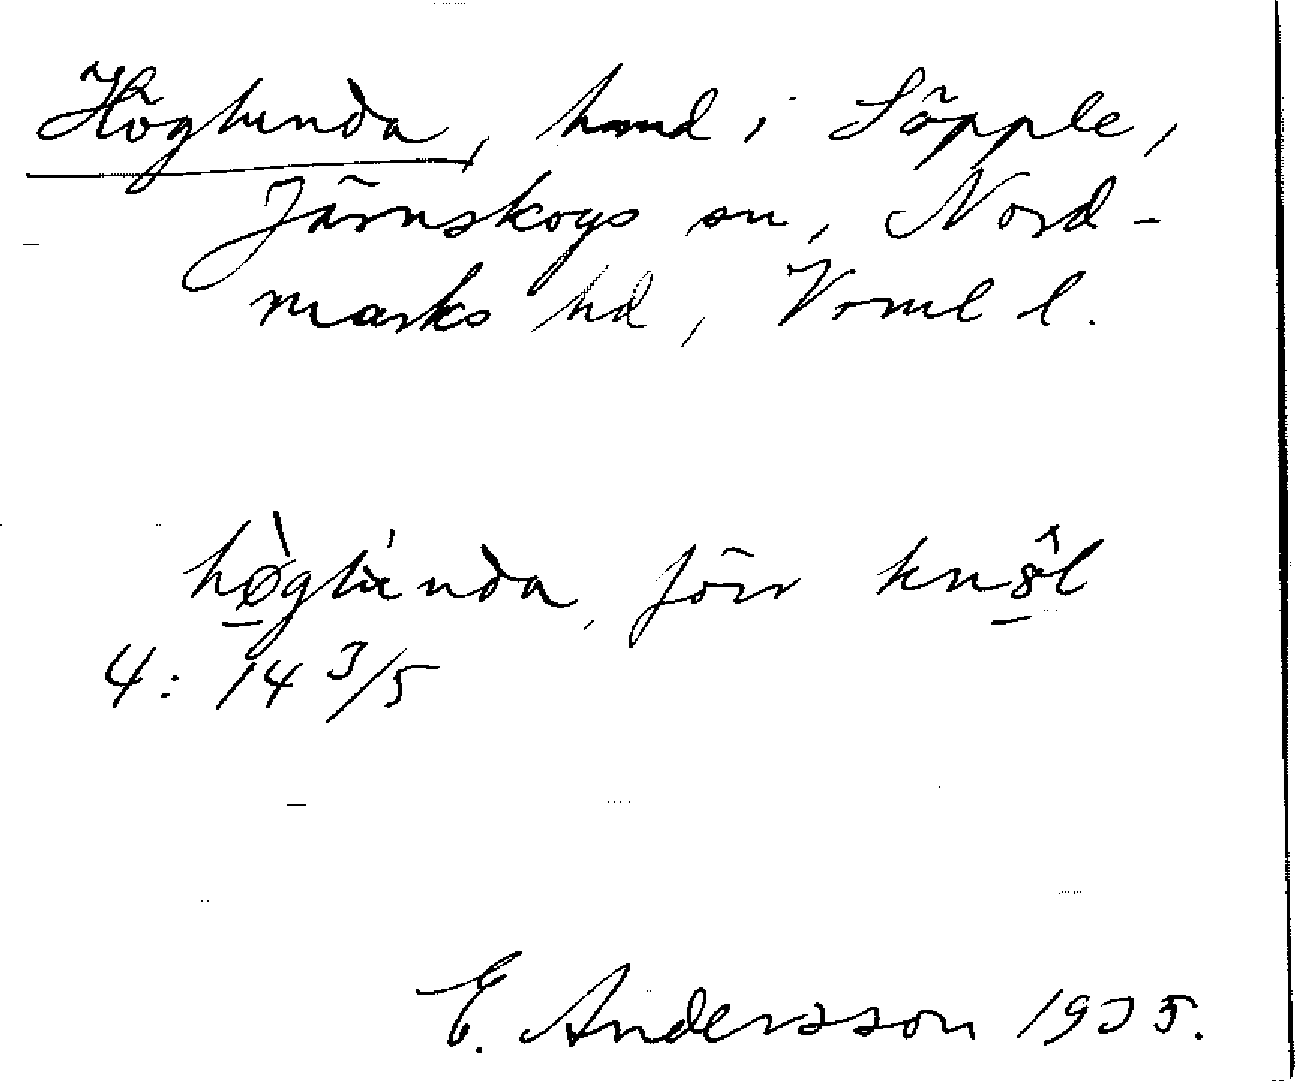 Höglunda, hmd i Säpple,
Järnskogs sn, Nord-
marks hd, Vrml l.
hø̀glúnda, förr knôl
4: 14 3/5
E. Andersson 1935.